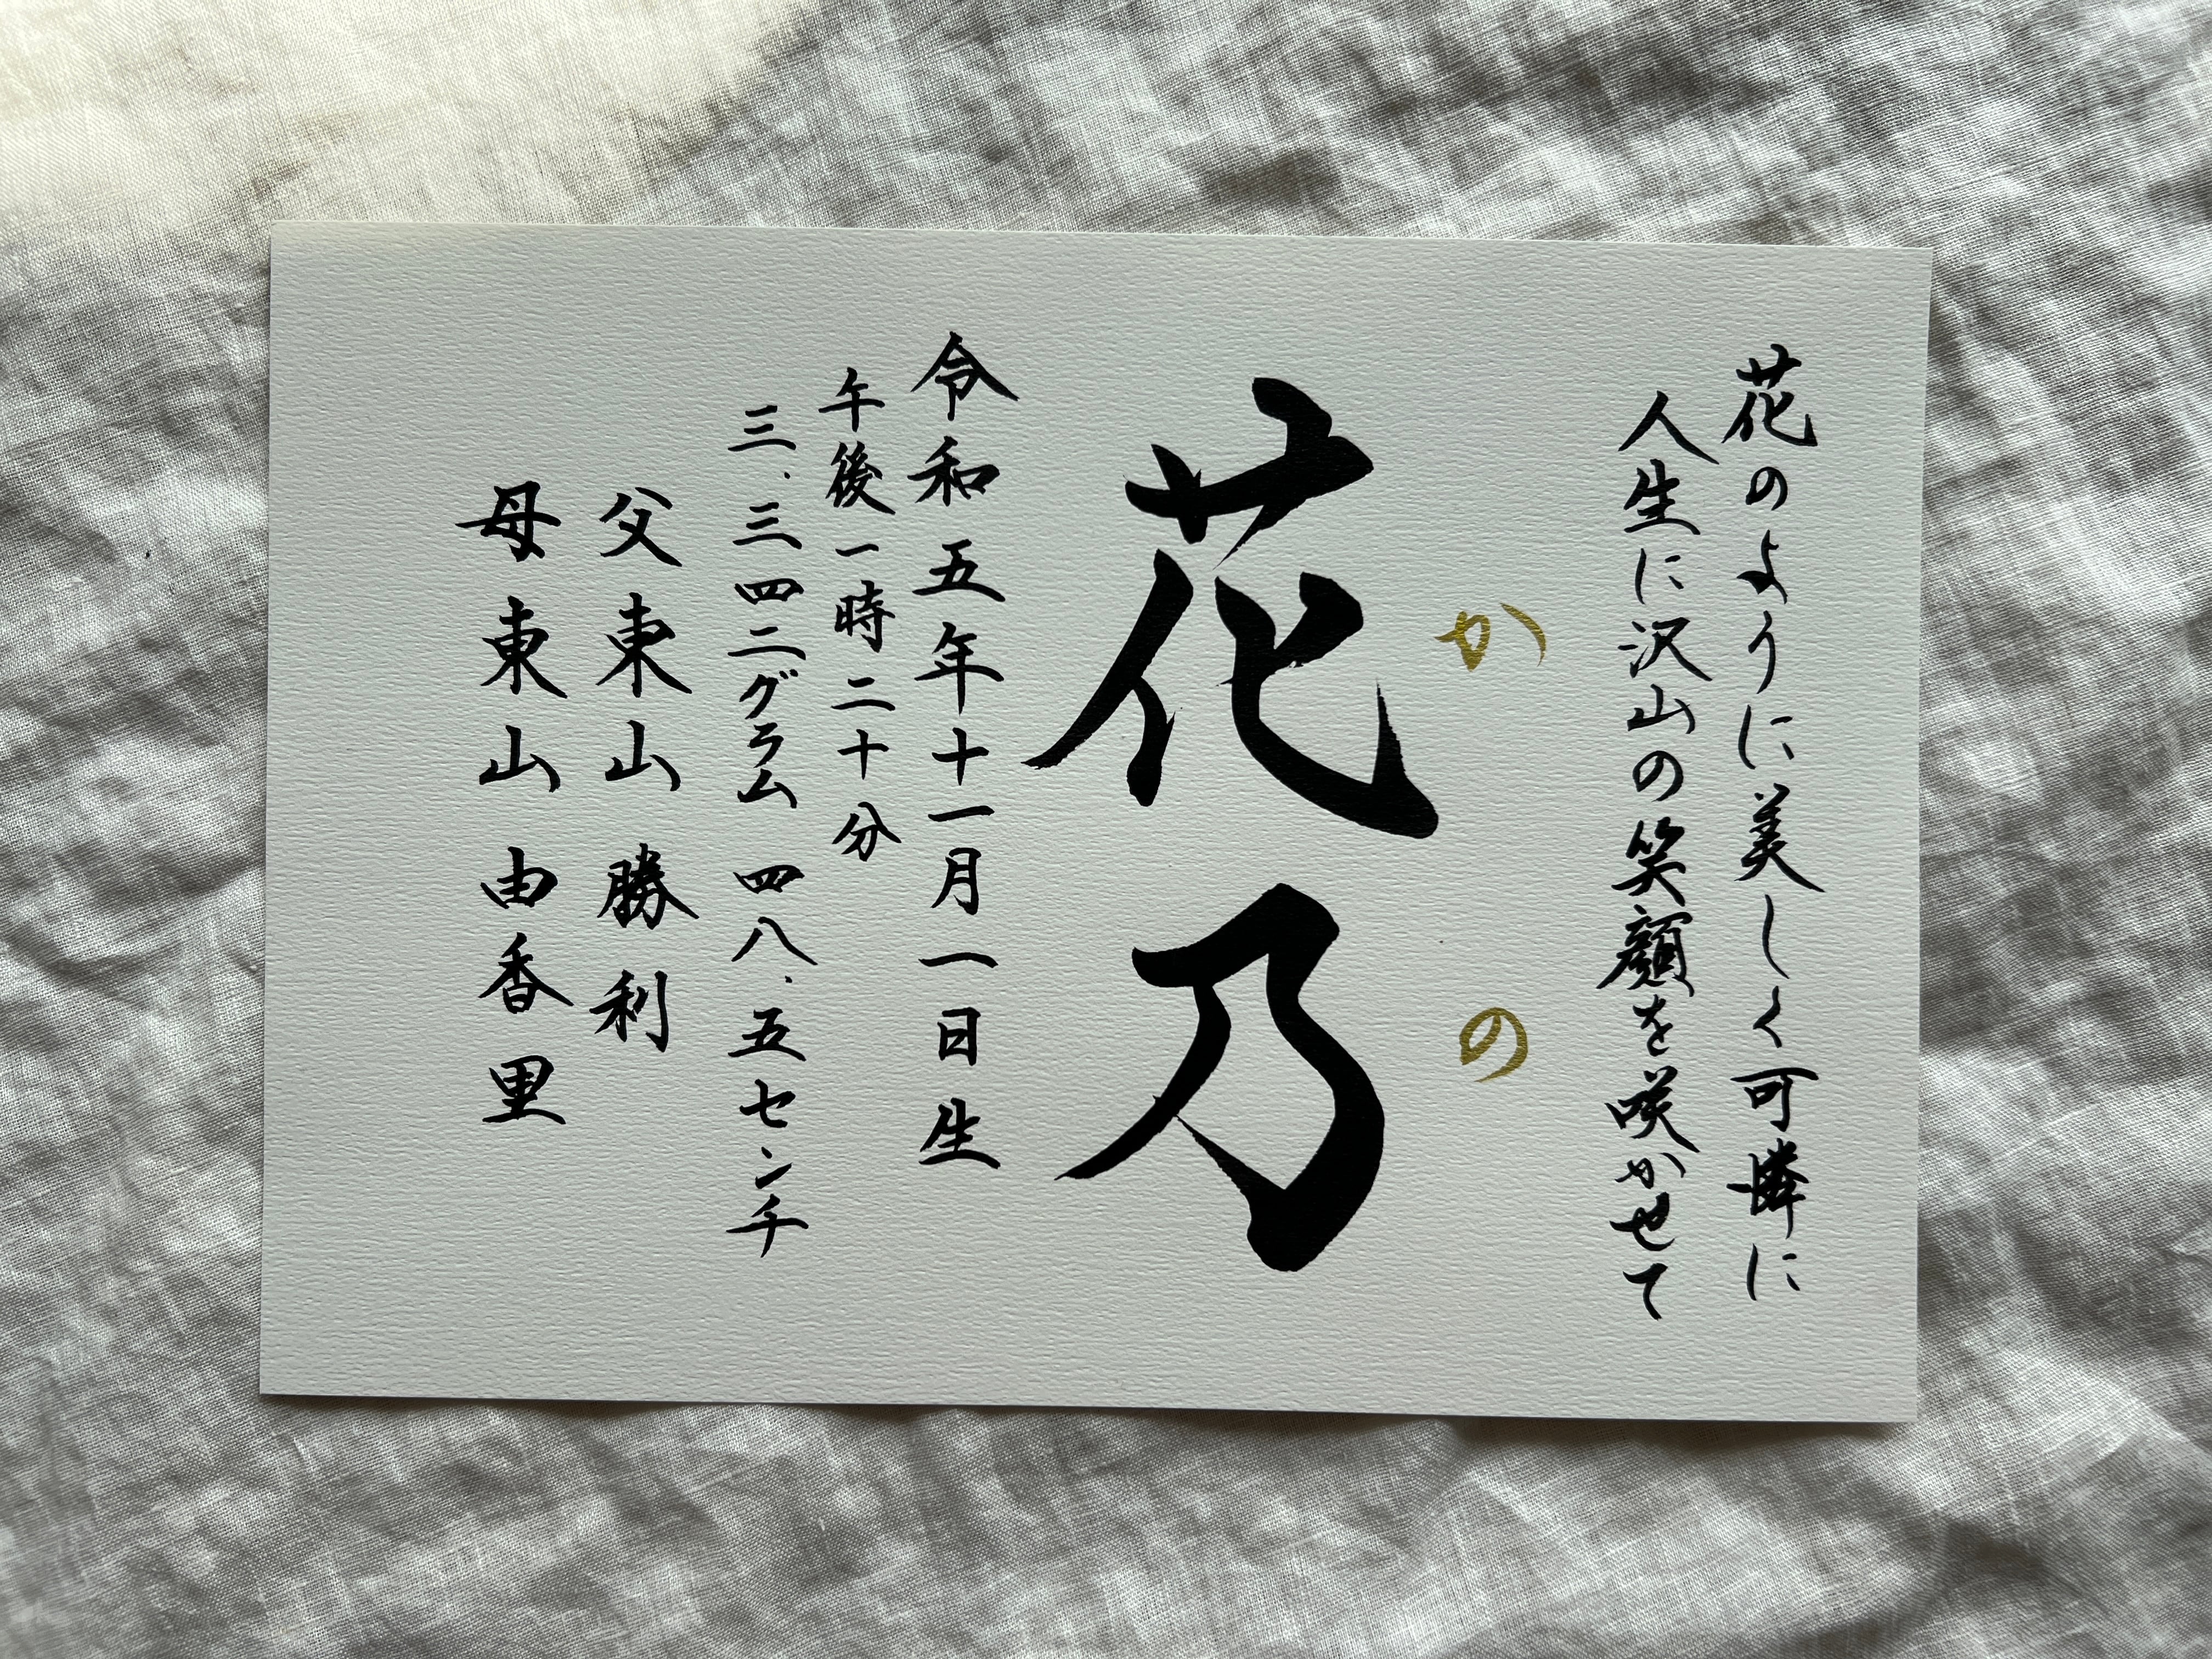 花のように美しく可憐に
人生に沢山の笑顔を咲かせて
かの
花乃
令和五年十一月一日生
午後一時二十分
三.三四二グラム 四八.五センチ
父 東山 勝利
母 東山 由香里